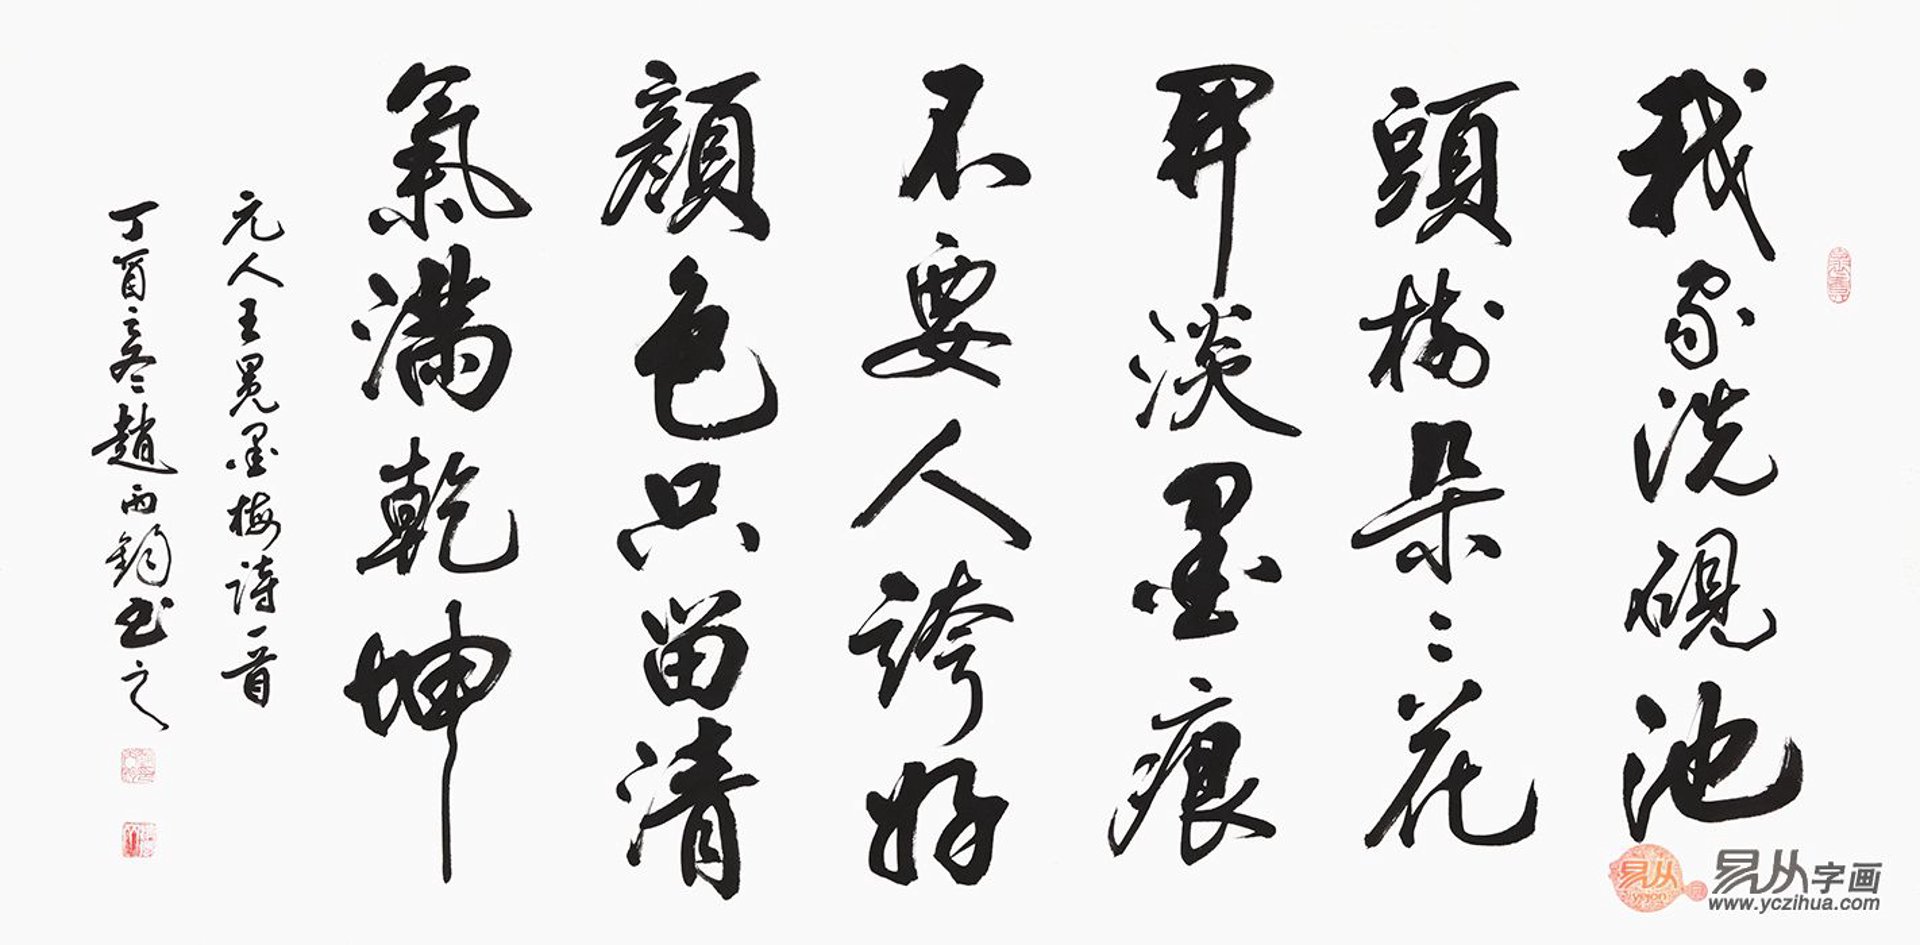 我家洗硯池
頭樹朵〻花
開淡墨痕
不要人誇好
顏色只留清
氣滿乾坤
元人王冕墨梅詩一首
丁酉之冬趙雨鈞书之
易从
yicon
易从字画
www.yczihua.com